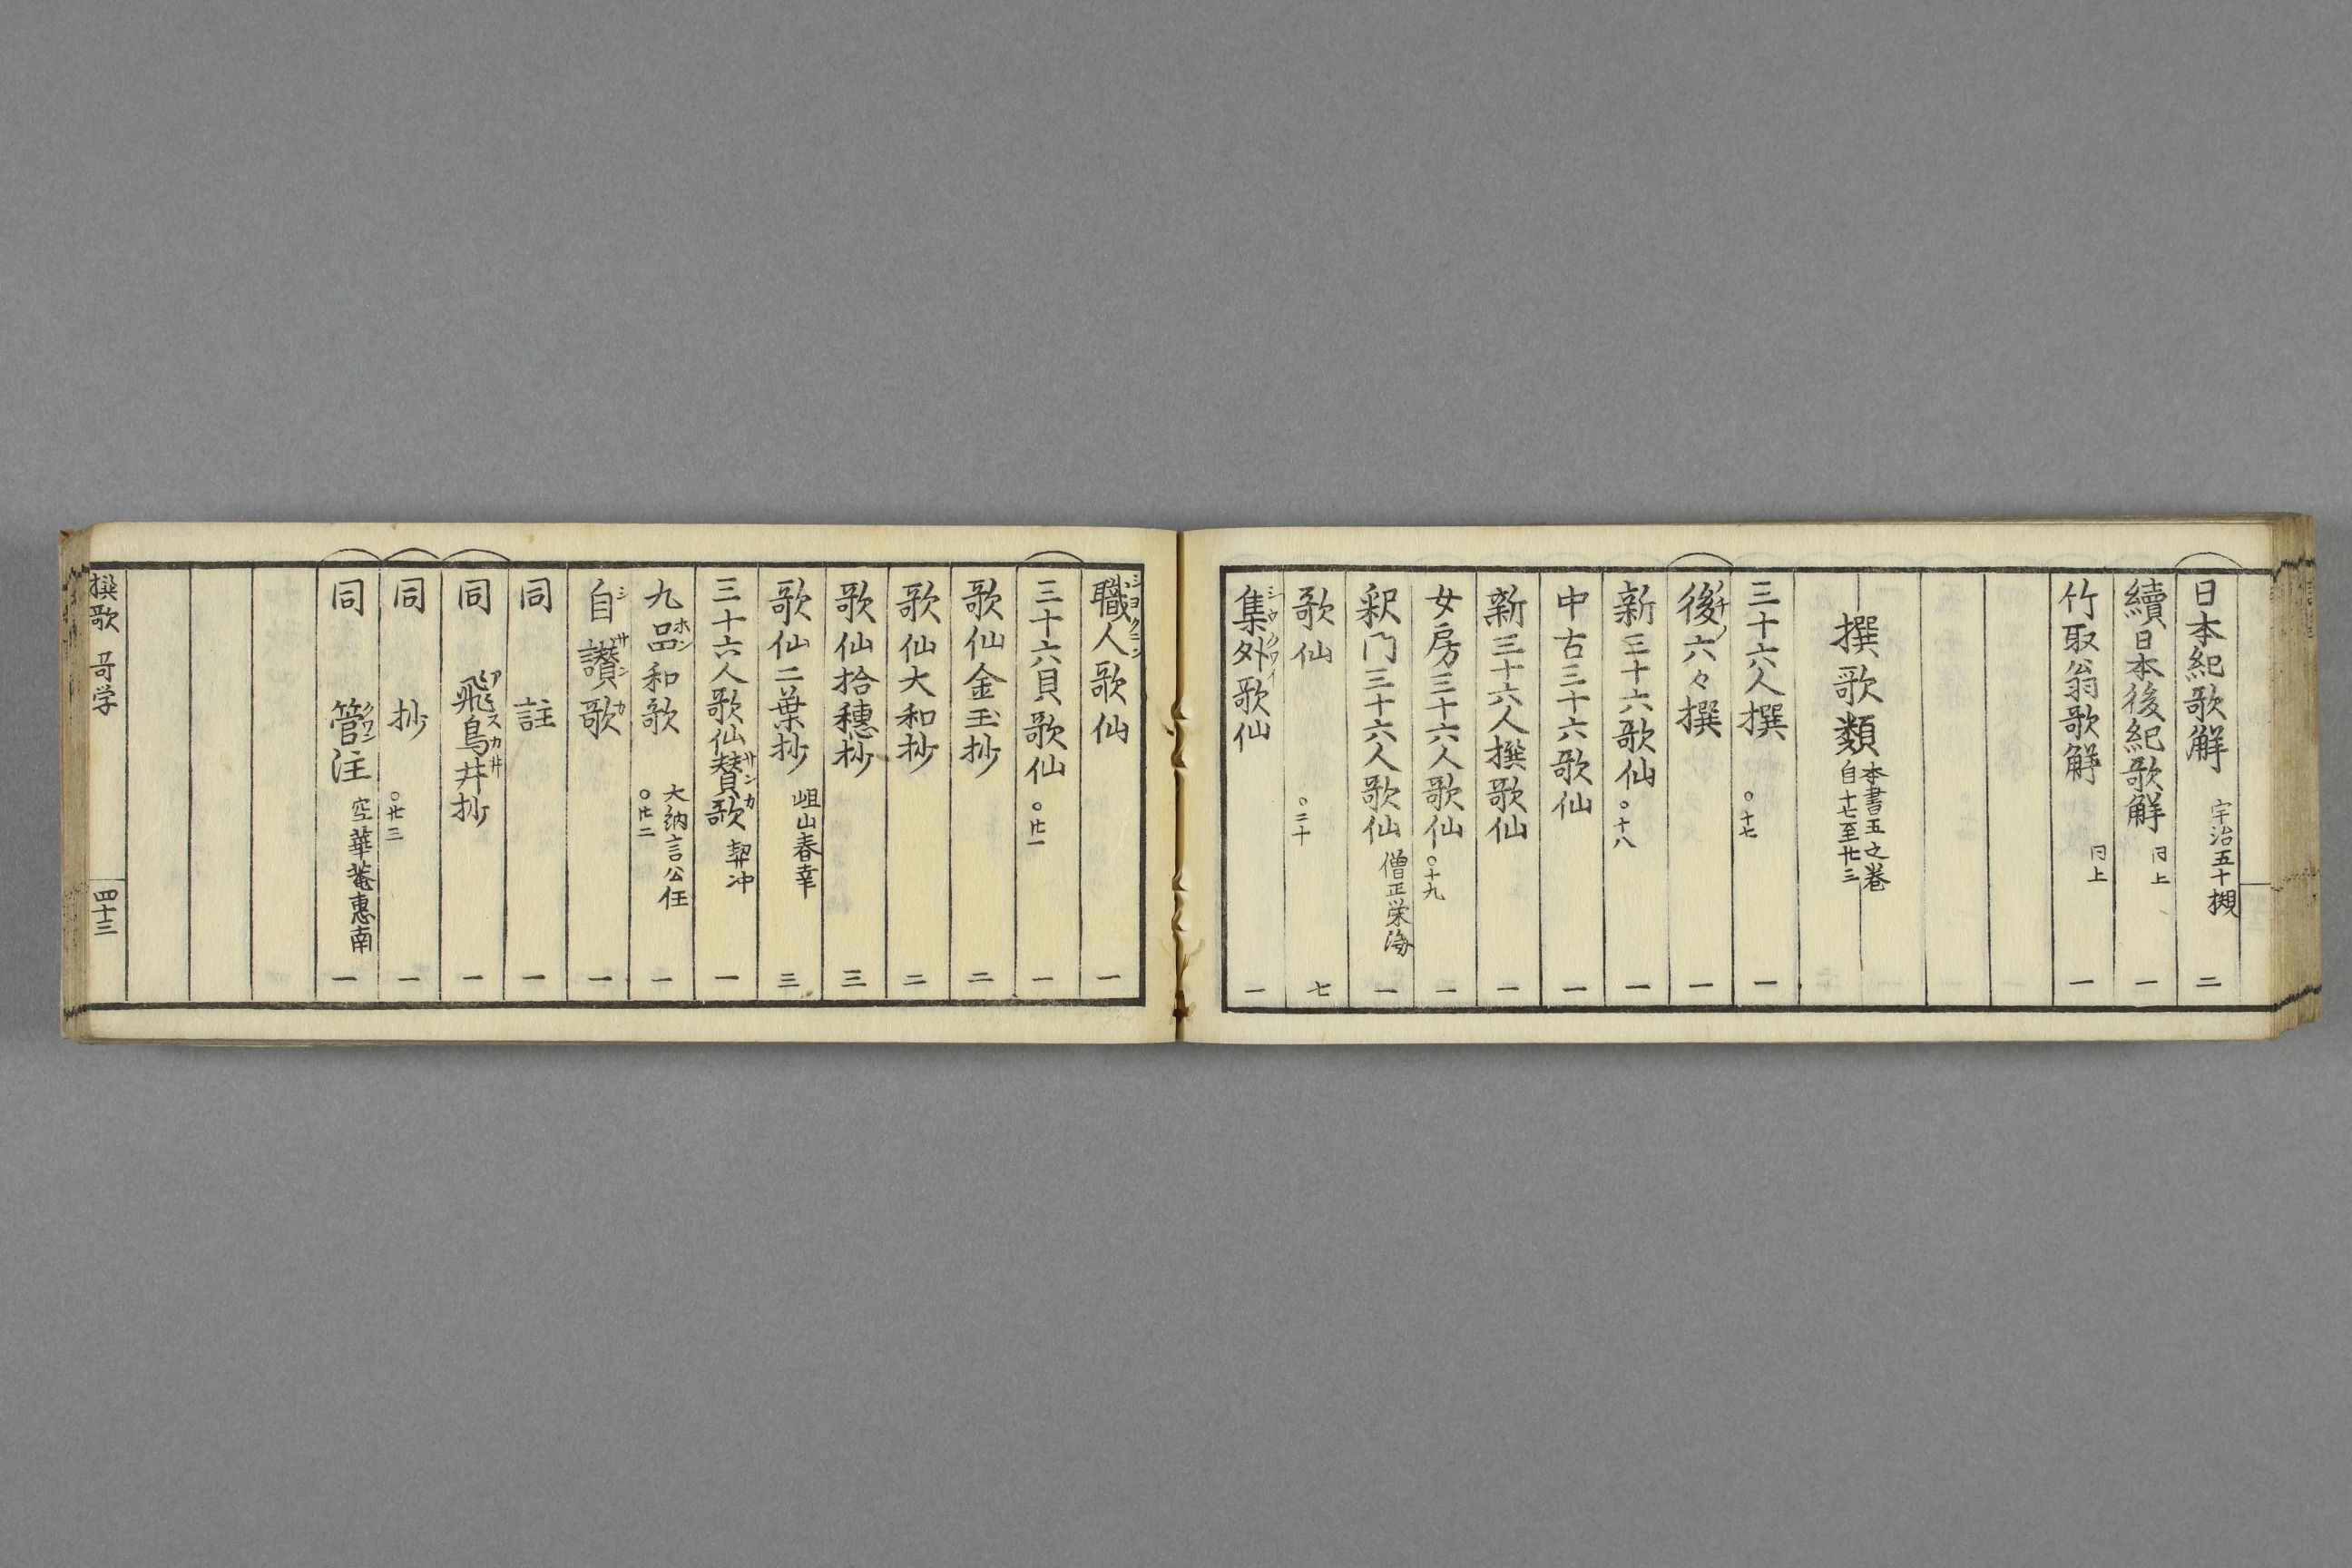 日本紀歌解 宇治五十槻 二
續日本後紀歌解 同上 一
竹取翁歌解 同上 一
撰歌類 本書五之巻
自十七至廿三
三十六人撰 〇十七 一
後六々撰 ノチノ 一
新三十六歌仙 〇十八 一
中古三十六歌仙 一
新三十六人撰歌仙 一
女房三十六人歌仙 〇十九 一
釈門三十六人歌仙 僧正栄海 一
歌仙 〇二十 七
集外歌仙 シウクワイ 一
職人歌仙 シヨクニン 一
三十六貝歌仙 〇廿一 一
歌仙金玉抄 二
歌仙大和抄 二
歌仙拾穗抄 三
歌仙二葉抄 岨山春幸 三
三十六人歌仙賛歌 サンカ 契冲 一
九品和歌 ホン 大納言公任 〇廿二 一
自讃歌 シサンカ 一
同 註 一
同 飛鳥井抄 アスカ井 一
同 抄 〇廿三 一
同 管注 クワン 空華菴惠南 一
撰歌 哥学 四十三